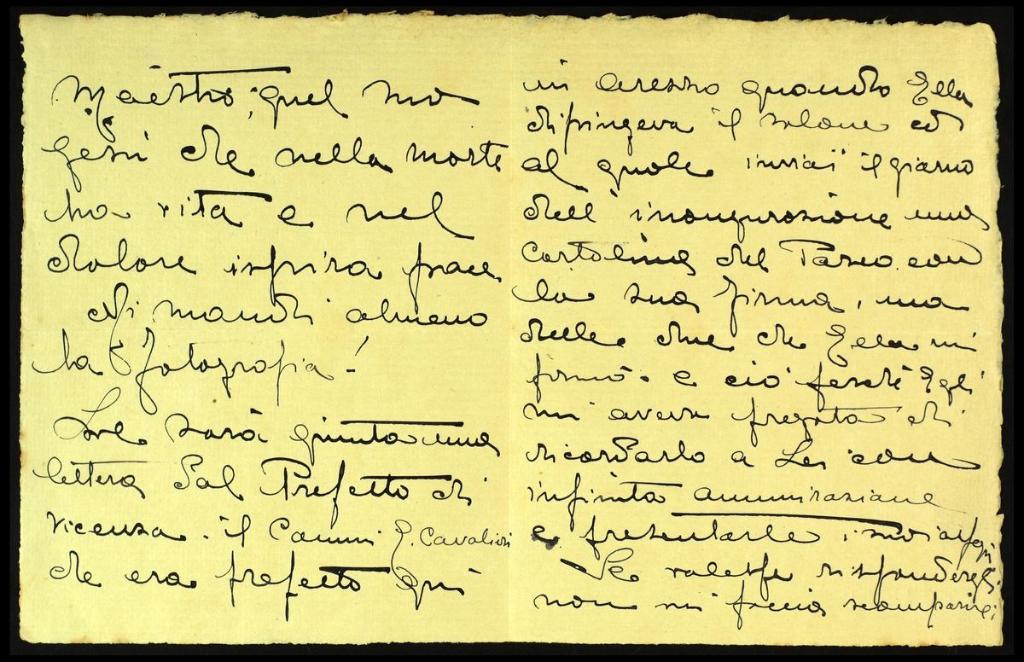 Maestro, quel suo
Gesù che nella morte
ha vita e nel
dolore ispira pace.
Mi mandi almeno
la fotografia!
Le sarà giunta una
lettera dal Prefetto di
Vicenza. il Comm G. Cavalieri
che era prefetto qui
in Arezzo quando Ella
dipingeva il salone ed
al quale inviai il giorno
dell'inaugurazione una
cartolina del Parco con
la sua firma, una
delle due che Ella mi
firmò. e ciò perché Egli
mi aveva pregata di
ricordarlo a Lei con
infinita ammirazione
e presentarle i suoi ossequi
Se volesse rispondergli
non mi faccia scomparire;